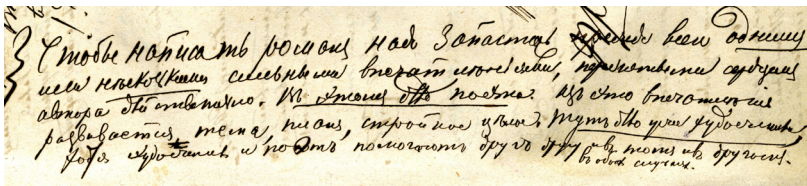 Чтобы написать романъ, надо запастись прежде всего однимъ
или нѣсколькими сильными впечатлѣніями, пережитыми сердцемъ
автора дѣйствительно. Въ этомъ дѣло поэта. Изъ этого впечатлѣнія
развивается тема, планъ, стройное цѣлое. Тутъ дѣло уже художника,
хотя художникъ и поэтъ помогаютъ другъ другу и въ томъ и въ другомъ.
въ обоихъ случаяхъ.